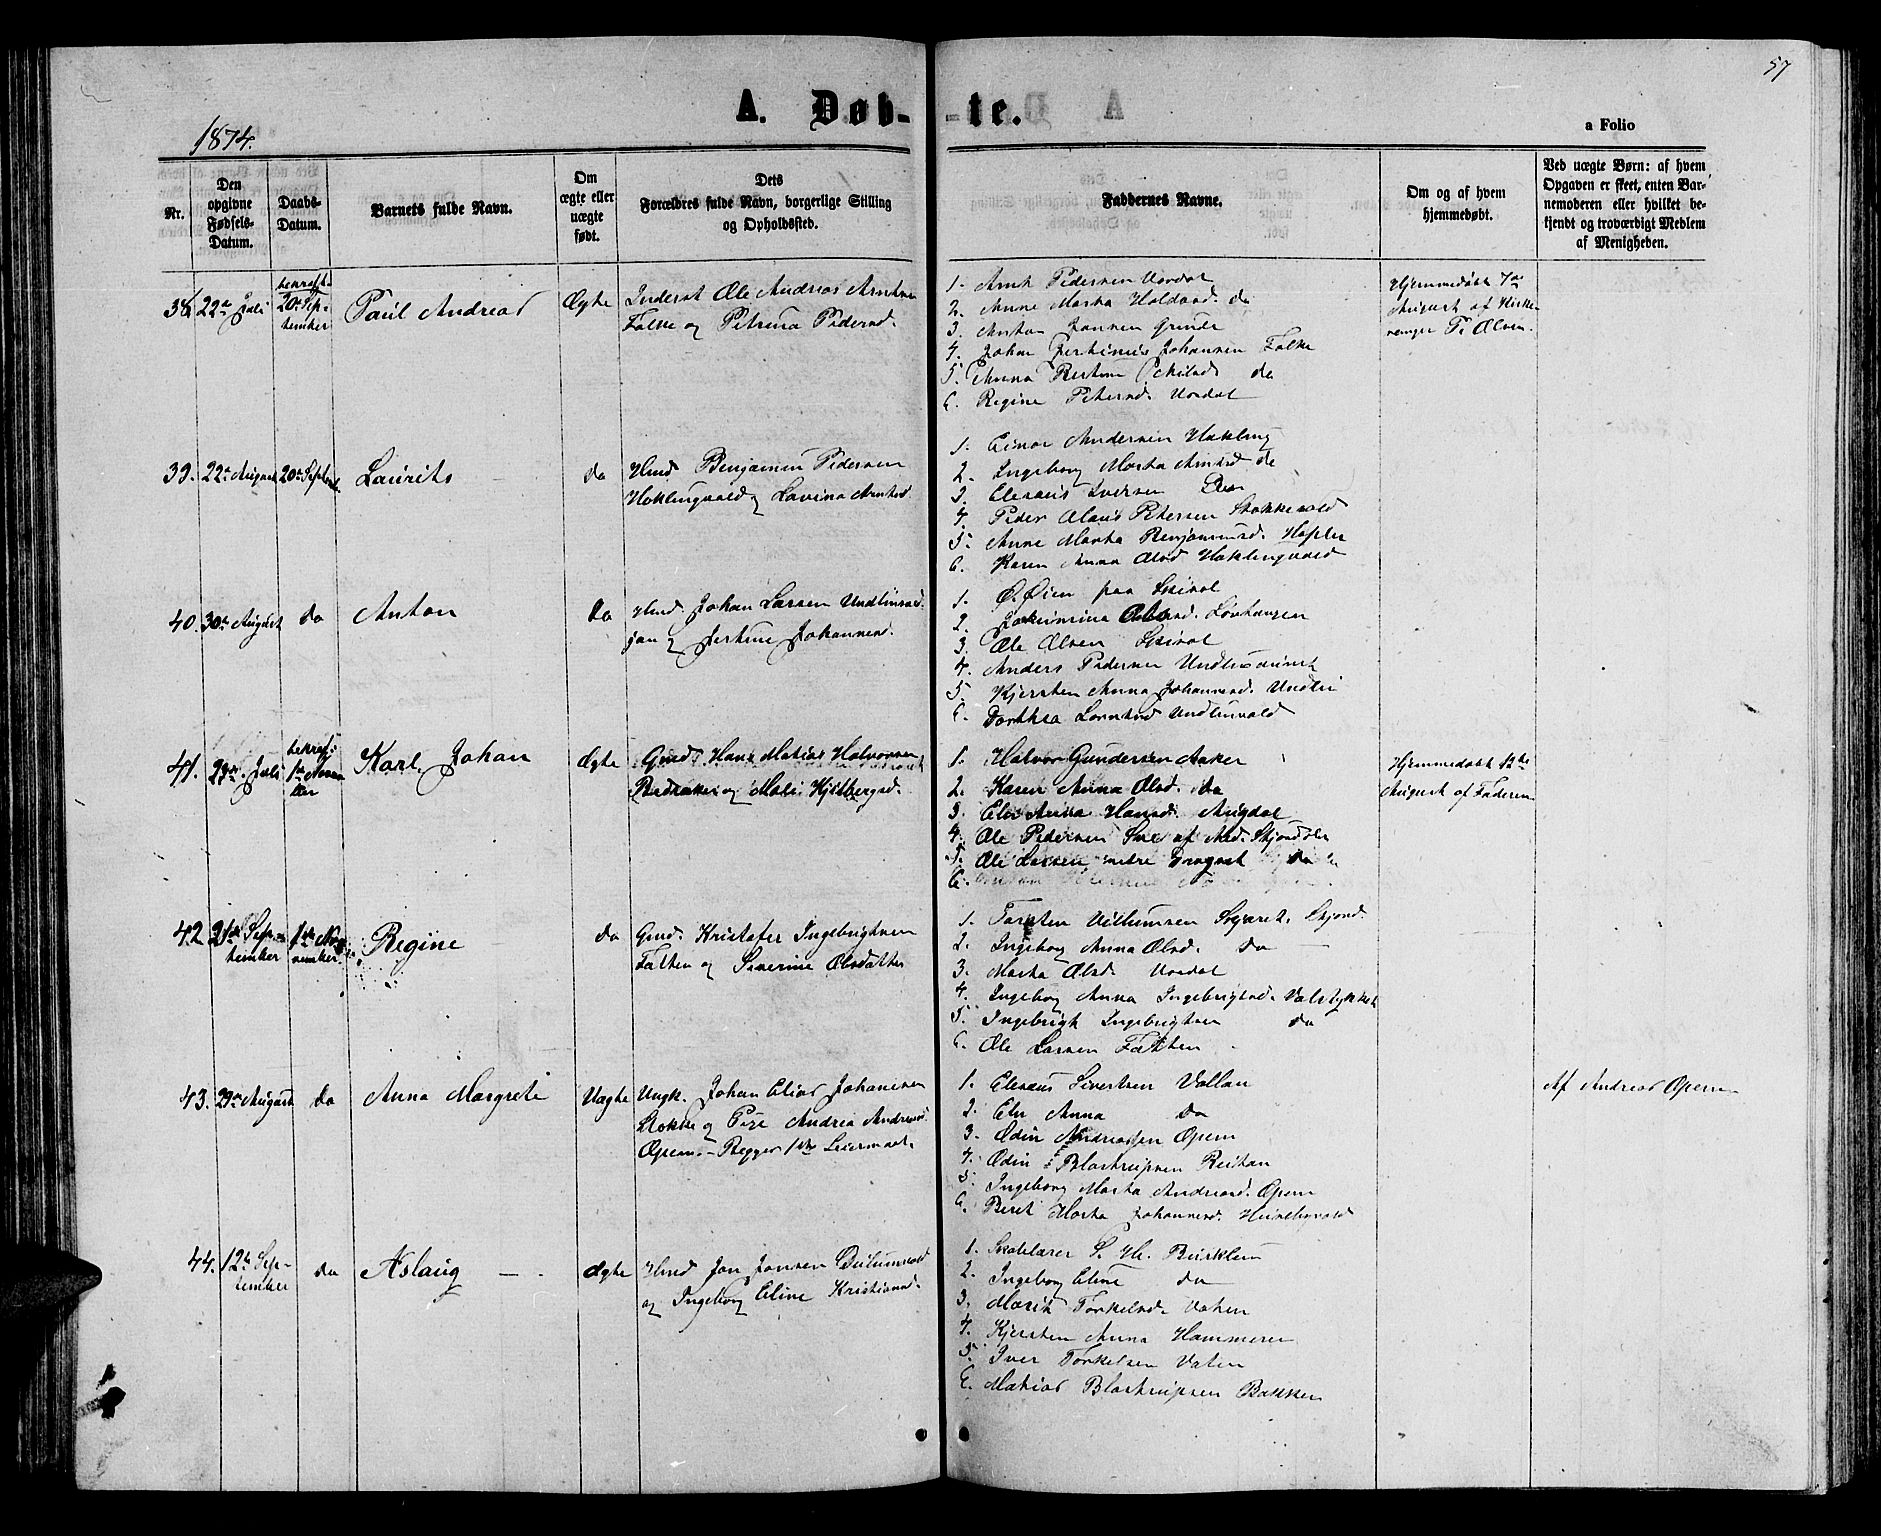 57
A. Døb- -te.
1874.
a Folio
Nr.
Den opgivne Fødsels-Datum.
Daabs-Datum.
Barnets fulde Navn.
Om ægte eller uægte født.
Dets Forældres fulde Navn, borgerlige Stilling og Opholdssted.
Faddernes Navne.
Om og af hvem hjemmedøbt.
Ved uægte Børn: af hvem Opgaven er skeet, enten Barnemoderen eller hvilket bekjendt og troværdigt Medlem af Menigheden.
38. 22de Juli 20de September Paul Andreas Ægte
Inderst Ole Andreas Arntsen
Falke og Petrina Pedersd.
1. Arnt Pedersen Vordal
2. Anne Marta Haldosd. do
3. Anton Jansen Grinde
4. Johan Johansen Falke
5. Anna do
6. Regine Petersd. Vordal
Hjemmedøbt 7de
August af Kirke
sanger P. Olsen.
39. 22de August 20de Septbr. Laurits do
Hmd Benjamin Pedersen
Haklingvald og Lavina Arntsd.
1. Einar Andersen Hakling
2. Ingeborg Marta Arntsd do
3. Eleraus Iversen
4. Peder Olaus Petersen Stokkevold
5. Anne Marta Benjaminsd. Hopla
6. Karen Anna Olsd Haklingvald
40. 30te August do Anton do
Hmd. Johan Larsen Undlinsad.
jan og Jertine Johannesd.
1. O. Øien paa
2. Løvhaugen
3. Ole Olsen
4. Anders Pedersen
5. Kjersten Anna Johannesd. Undli
6. Dorthea Lorntsd Undlinvald
41. 29de Juli 1ste November Karl Johan Ægte
Gmd. Hans Matias Halvorsen
og Mali Kjelbergsd.
1. Halvor Gundersen Aaker
2. Karen Anna Olsd. do
3. Elen Anna Hansd. Augdal
4. Ole Pedersen
5. Ole Larsen do
6.
Hjemmedøbt 12te
August af Faderen
42. 21de September 1ste November Regine do
Gmd. Kristofer Ingebrigtsen
Fatten og Severine Olsdatter
1. Torsten Villumsen
2. Ingeborg Anna Olsd. do
3. Marta Olsd Vordal
4. Ingeborg Anna Ingebrigtsd. Valstykket
5. Ingebrigt Ingebrigtsen do
6. Ole Larsen Fatten
43. 29de August do Anna Margrete Uægte
Ungk. Johan Elias Johansen
Stokke og Pige Andrea Andreasd.
Opem - Begges 1ste Leiermaal.
1. Eleraus Sivertsen Vollan
2. Elen Anna do
3. Odin Andreassen Opem
4. Odin Blastrupsen Reitan
5. Ingeborg Marta Andreasd. Opem
6. Beret Marta Johannesd.
Af Andreas Opem
44. 12te September do Aslaug Ægte
Hmd Jon Jonsen
og Ingeborg Eline Kristiansd.
1. Skolelærer S. H. Burkleim
2. Ingeborg Eline do
3. Marit Torkelsd. Vaten
4. Kjersten Anna Hammerer
5. Iver Torkelsen Vaten
6. Matias Blastrupsen Bakken